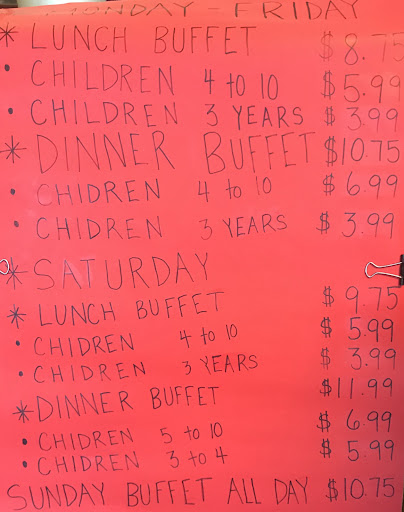 MONDAY - FRIDAY
* LUNCH BUFFET $ 8.75
• CHILDREN 4 to 10 $ 5.99
• CHILDREN 3 YEARS $ 3.99
* DINNER BUFFET $10.75
• CHIDREN 4 to 10 $ 6.99
• CHIDREN 3 YEARS $ 3.99
* SATURDAY
* LUNCH BUFFET $ 9.75
• CHIDREN 4 to 10 $ 5.99
• CHIDREN 3 YEARS $ 3.99
* DINNER BUFFET $11.99
• CHIDREN 5 to 10 $ 6.99
• CHIDREN 3 to 4 $ 5.99
SUNDAY BUFFET ALL DAY $10.75